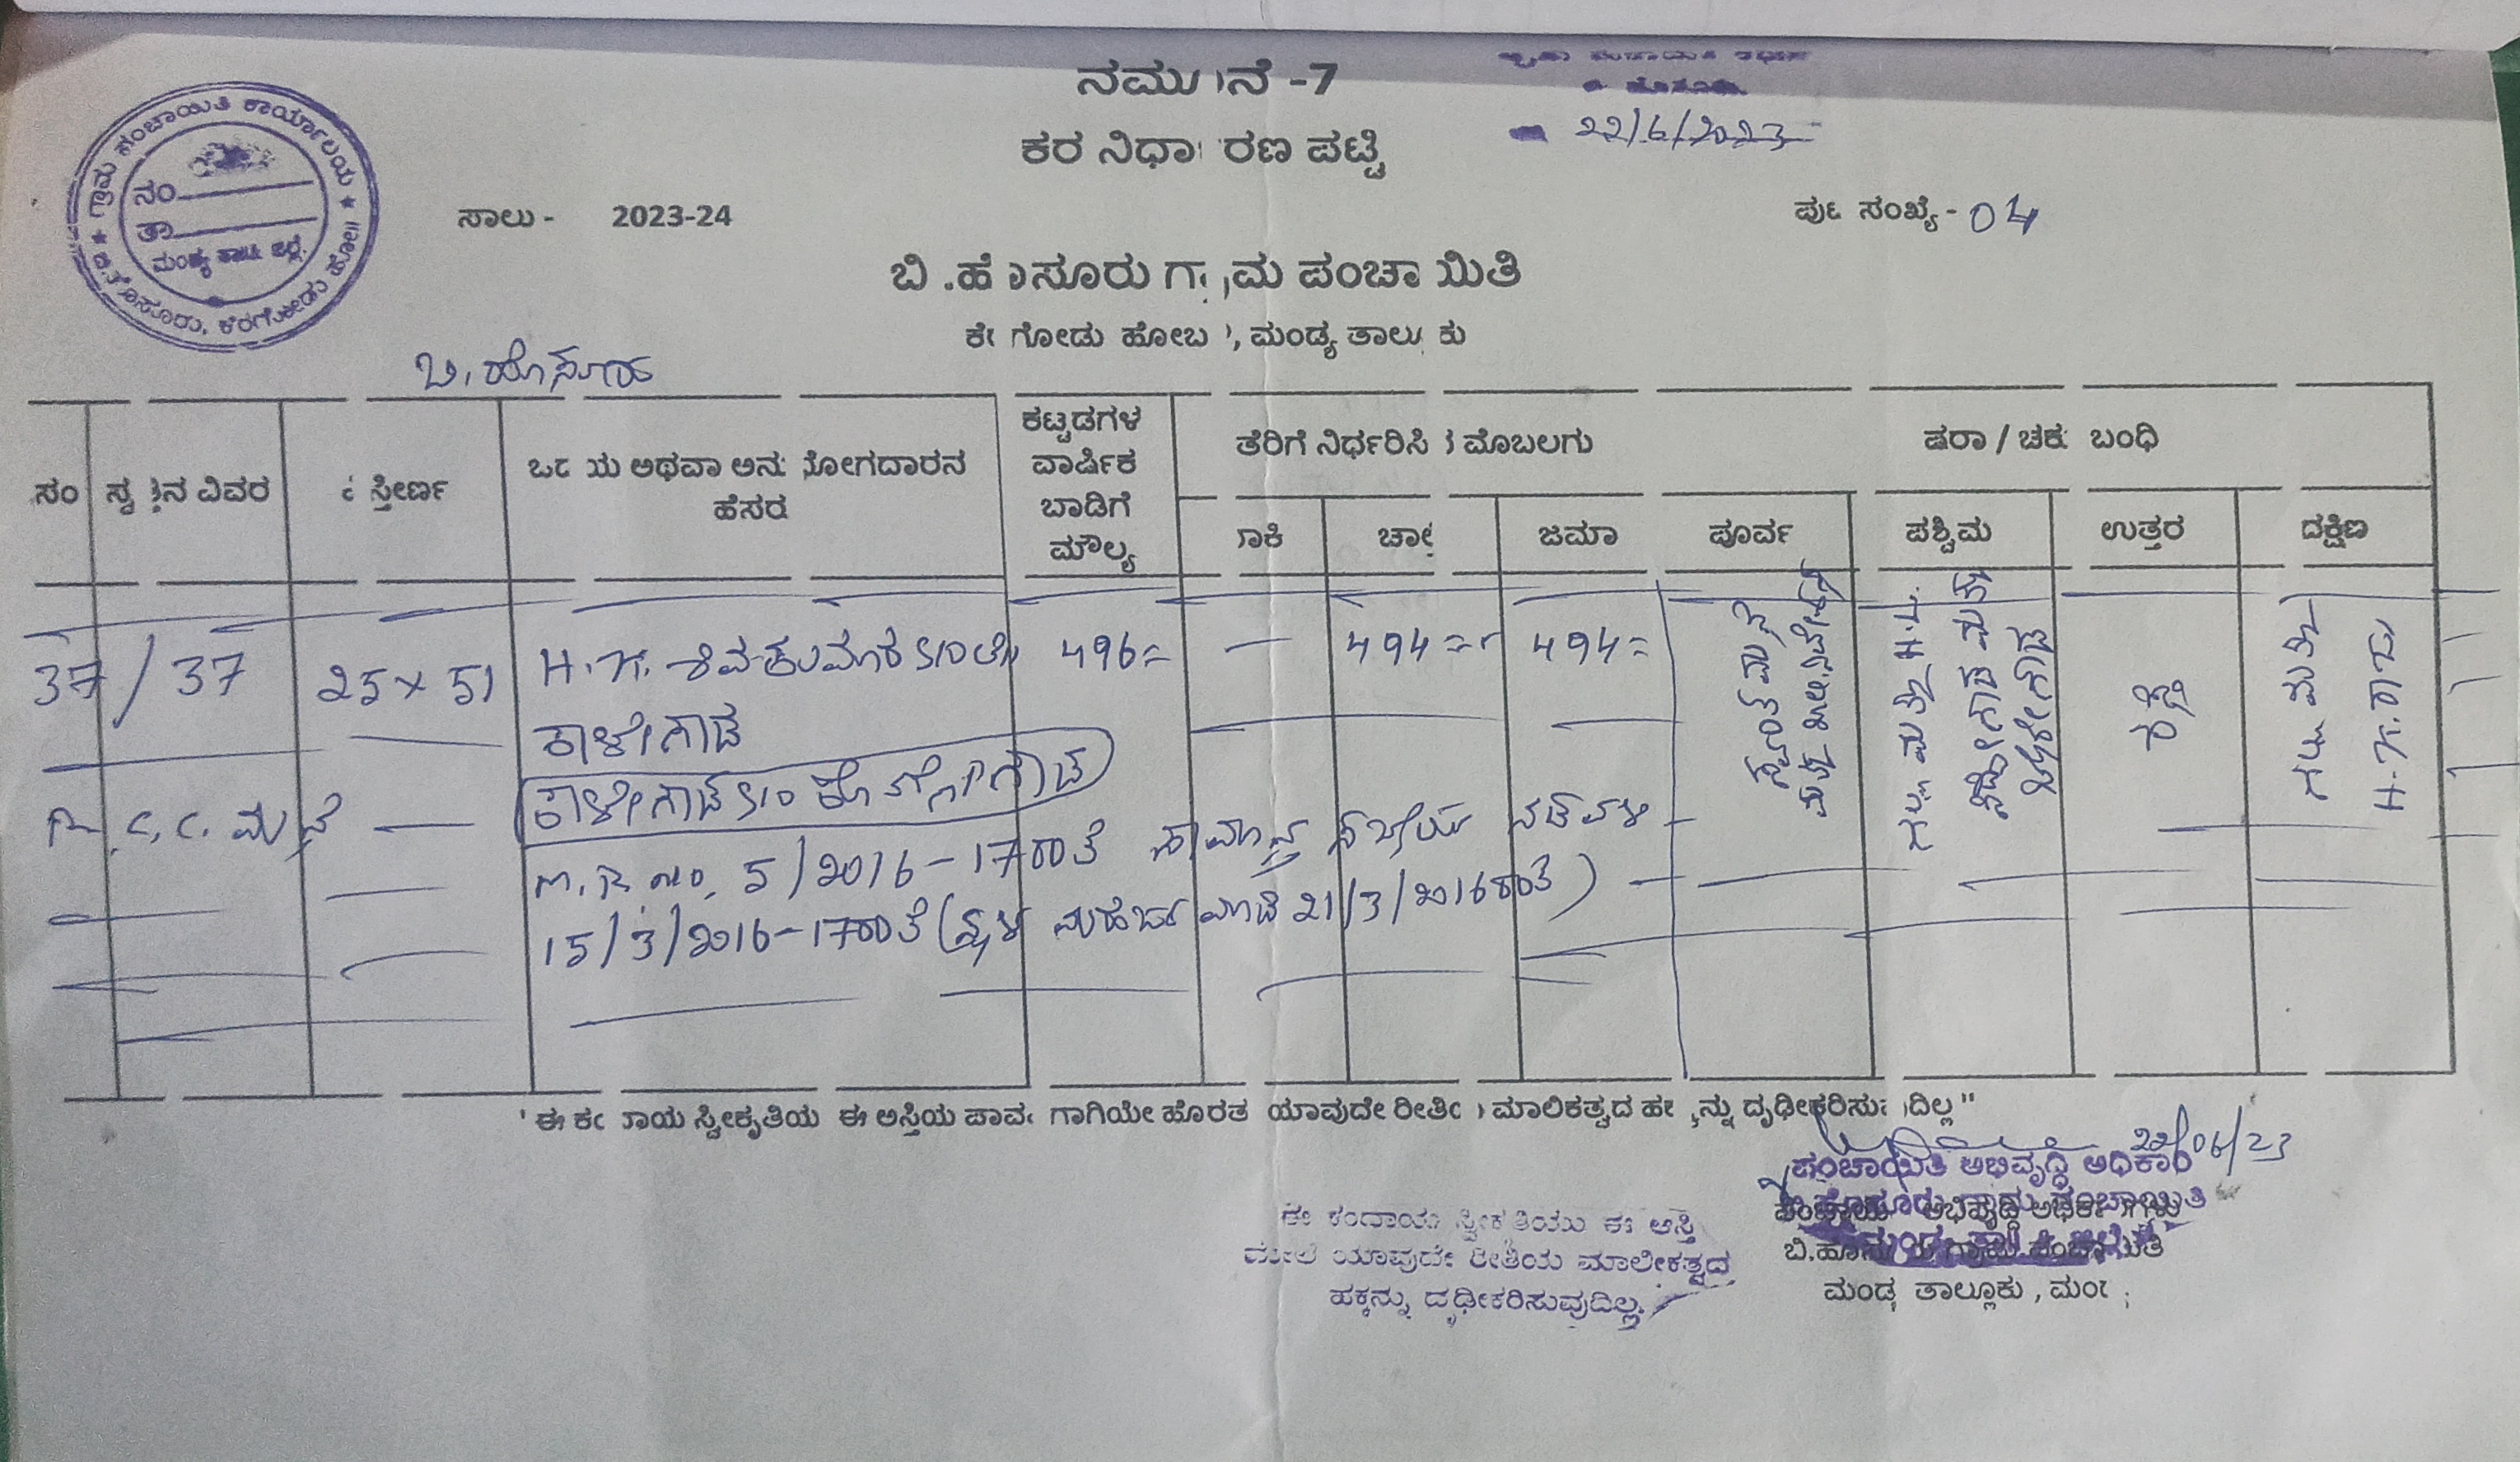 ನಮೂನೆ -7
22/6/2023
ಕರ ನಿರ್ಧಾರಣ ಪಟ್ಟಿ
ಗ್ರಾಮ ಪಂಚಾಯಿತಿ ಕಾರ್ಯಾಲಯ
ನಂ
ತಾ
ಮಂಡ್ಯ ತಾಲ್ಲೂಕು ಜಿಲ್ಲೆ
ಬಿ.ಹೊಸೂರು, ಕೆರಗೋಡು ಹೋ॥
ಸಾಲು - 2023-24
ಪುಟ ಸಂಖ್ಯೆ - 04
ಬಿ.ಹೊಸೂರು ಗ್ರಾಮ ಪಂಚಾಯಿತಿ
ಕೆರಗೋಡು ಹೋಬಳಿ, ಮಂಡ್ಯ ತಾಲ್ಲೂಕು
ಬಿ. ಹೊಸೂರು
ಸಂ ಸ್ವತ್ತಿನ ವಿವರ ವಿಸ್ತೀರ್ಣ ಒಡೆಯ ಅಥವಾ ಅನುಭೋಗದಾರನ ಹೆಸರು ಕಟ್ಟಡಗಳ ವಾರ್ಷಿಕ ಬಾಡಿಗೆ ಮೌಲ್ಯ ತೆರಿಗೆ ನಿರ್ಧರಿಸಿದ ಮೊಬಲಗು ಷರಾ / ಚಕ್ಕುಬಂಧಿ
ಬಾಕಿ ಚಾಲ್ತಿ ಜಮಾ ಪೂರ್ವ ಪಶ್ಚಿಮ ಉತ್ತರ ದಕ್ಷಿಣ
37 / 37 25 x 51 H.K. ಶಿವಕುಮಾರ S/O ಲೇ 496= — 494= 494=
ಕಾಳೇಗೌಡ
ಕಾಳೇಗೌಡ S/O
R.C.C. ಮನೆ
M.R. no. 5/2016-17ರಂತೆ ಸಾಮಾನ್ಯ ಸಭೆಯ ನಡವಳಿ
15/3/2016-17ರಂತೆ (ಸ್ಥಳ ಮಹಜರು ಮಾಡಿ 21/3/2016ರಂತೆ)
ರಸ್ತೆ
H.K. ರಾಜು
"ಈ ಕಂದಾಯ ಸ್ವೀಕೃತಿಯು ಈ ಅಸ್ತಿಯ ಪಾವತಿಗಾಗಿಯೇ ಹೊರತು ಯಾವುದೇ ರೀತಿಯ ಮಾಲಿಕತ್ವದ ಹಕ್ಕನ್ನು ದೃಢೀಕರಿಸುವುದಿಲ್ಲ"
22/06/23
ಪಂಚಾಯಿತಿ ಅಭಿವೃದ್ಧಿ ಅಧಿಕಾರಿ
ಬಿ.ಹೊಸೂರು ಗ್ರಾಮ ಪಂಚಾಯಿತಿ
ಈ ಕಂದಾಯ ಸ್ವೀಕೃತಿಯು ಈ ಅಸ್ತಿ
ಮೇಲೆ ಯಾವುದೇ ರೀತಿಯ ಮಾಲೀಕತ್ವದ
ಹಕ್ಕನ್ನು ದೃಢೀಕರಿಸುವುದಿಲ್ಲ.
ಪಂಚಾಯಿತಿ ಅಭಿವೃದ್ಧಿ ಅಧಿಕಾರಿಗಳು
ಬಿ.ಹೊಸೂರು ಗ್ರಾಮ ಪಂಚಾಯಿತಿ
ಮಂಡ್ಯ ತಾಲ್ಲೂಕು, ಮಂಡ್ಯ